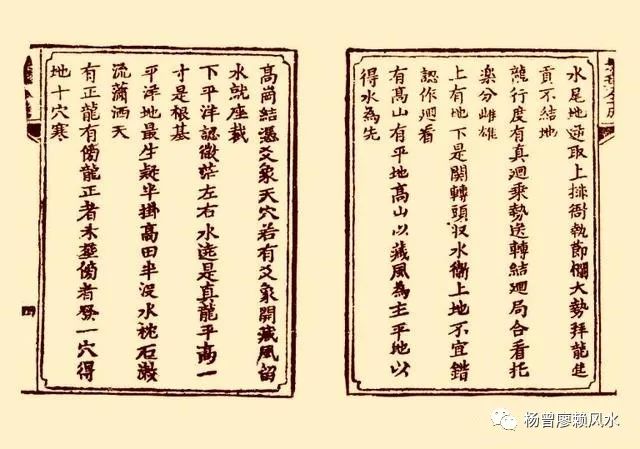 水尾地逆取上排衙執節欄大勢拜龍进
貢不結地
龍行度有真迴乘勢送轉結迴局合看托
楽分雌雄
上有地下是関轉頭収水衛上地不宜錯
認作迴看
有髙山有平地髙山以藏風為主平地以
得水為先
高崗結憑爻象天穴若有爻象開藏風留
水就座裁
下平洋認微茫左右水遶是真龍平高一
寸是根基
平洋地最生疑半掛高田半沒水枕石漱
流瀟洒天
有正龍有傍龍正者未塟傍者發一穴得
地十穴寒
四
杨曾廖赖风水